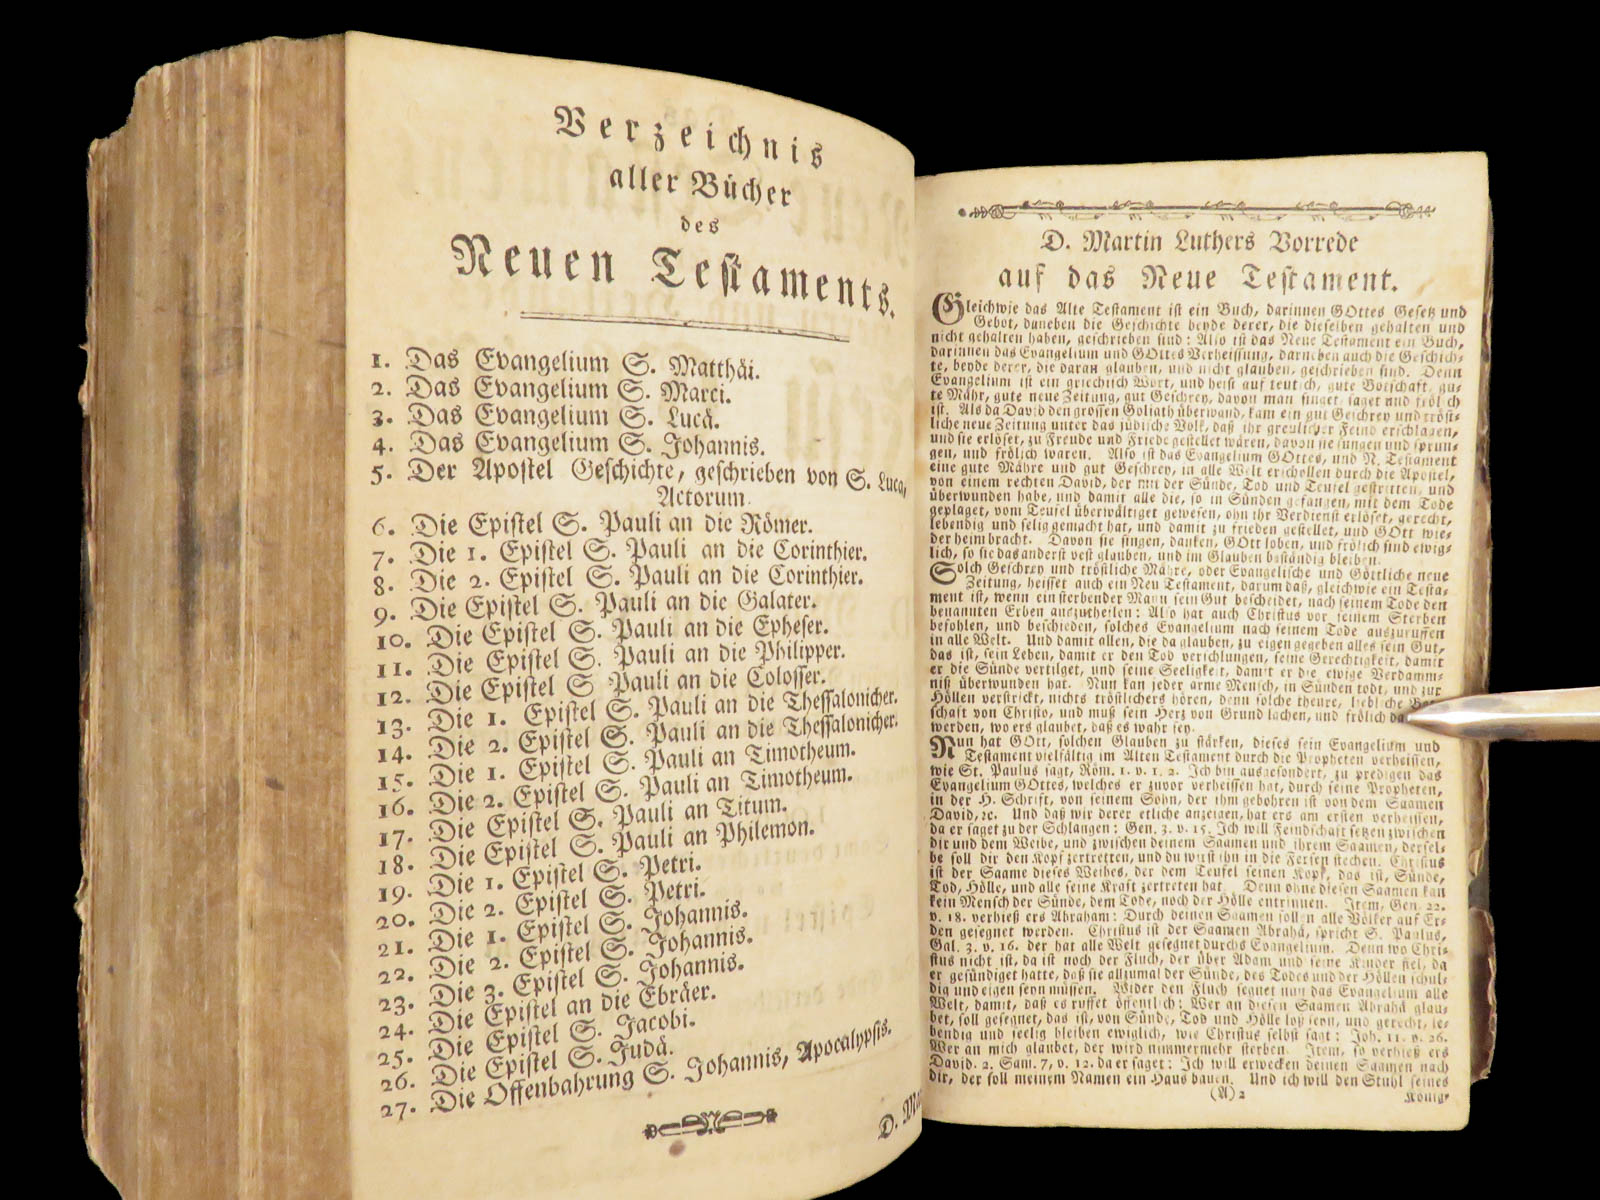 Verzeichnis
aller Bücher
des
Neuen Testaments.
1. Das Evangelium S. Matthäi.
2. Das Evangelium S. Marci.
3. Das Evangelium S. Lucä.
4. Das Evangelium S. Johannis.
5. Der Apostel Geschichte, geschrieben von S. Luca,
Actorum.
6. Die Epistel S. Pauli an die Römer.
7. Die 1. Epistel S. Pauli an die Corinthier.
8. Die 2. Epistel S. Pauli an die Corinthier.
9. Die Epistel S. Pauli an die Galater.
10. Die Epistel S. Pauli an die Epheser.
11. Die Epistel S. Pauli an die Philipper.
12. Die Epistel S. Pauli an die Colosser.
13. Die 1. Epistel S. Pauli an die Thessalonicher.
14. Die 2. Epistel S. Pauli an die Thessalonicher.
15. Die 1. Epistel S. Pauli an Timotheum.
16. Die 2. Epistel S. Pauli an Timotheum.
17. Die Epistel S. Pauli an Titum.
18. Die Epistel S. Pauli an Philemon.
19. Die 1. Epistel S. Petri.
20. Die 2. Epistel S. Petri.
21. Die 1. Epistel S. Johannis.
22. Die 2. Epistel S. Johannis.
23. Die 3. Epistel S. Johannis.
24. Die Epistel an die Ebräer.
25. Die Epistel S. Jacobi.
26. Die Epistel S. Judä.
27. Die Offenbahrung S. Johannis, Apocalypsis.
D. Mar
D. Martin Luthers Vorrede
auf das Neue Testament.
Gleichwie das Alte Testament ist ein Buch, darinnen GOttes Gesetz und
Gebot, daneben die Geschichte beyde derer, die dieselben gehalten und
nicht gehalten haben, geschrieben sind: Also ist das Neue Testament ein Buch,
darinnen das Evangelium und GOttes Verheissung, darneben auch die Geschich-
te, beyde derer, die daran glauben, und nicht glauben, geschrieben sind. Denn
Evangelium ist ein griechisch Wort, und heist auf teutsch, gute Botschaft, gu-
te Mähr, gute neue Zeitung, gut Geschrey, davon man singet, saget und frölich
ist. Als da David den grossen Goliath überwand, kam ein gut Geschrey und tröst-
liche neue Zeitung unter das jüdische Volk, daß ihr greulicher Feind erschlagen,
und sie erlöset, zu Freude und Friede gestellet wären, davon sie sungen und sprun-
gen, und frölich waren. Also ist das Evangelium GOttes, und N. Testament
eine gute Mähre und gut Geschrey, in alle Welt erschollen durch die Apostel,
von einem rechten David, der mit der Sünde, Tod und Teufel gestritten, und
überwunden habe, und damit alle die, so in Sünden gefangen, mit dem Tode
geplaget, vom Teufel überwältiget gewesen, ohn ihr Verdienst erlöset, gerecht,
lebendig und selig gemacht hat, und damit zu frieden gestellet, und GOtt wie-
der heimbracht. Davon sie singen, danken, GOtt loben, und frölich sind ewig-
lich, so sie das anderst vest glauben, und im Glauben beständig bleiben.
Solch Geschrey und tröstliche Mähre, oder Evangelische und Göttliche neue
Zeitung, heisset auch ein Neu Testament, darum daß, gleichwie ein Testa-
ment ist, wenn ein sterbender Mann sein Gut bescheidet, nach seinem Tode den
benannten Erben auszutheilen: Also hat auch Christus vor seinem Sterben
befohlen, und beschieden, solches Evangelium nach seinem Tode auszuruffen
in alle Welt. Und damit allen, die da glauben, zu eigen gegeben alles sein Gut,
das ist, sein Leben, damit er den Tod verschlungen, seine Gerechtigkeit, damit
er die Sünde vertilget, und seine Seeligkeit, damit er die ewige Verdamm-
niß überwunden hat. Nun kan jeder arme Mensch, in Sünden todt, und zur
Höllen verstrickt, nichts tröstlichers hören, denn solche theure, liebliche Bot-
schaft von Christo, und muß sein Herz von Grund lachen, und frölich da
werden, wo ers glaubet, daß es wahr sey.
Nun hat GOtt, solchen Glauben zu stärken, dieses sein Evangelium und
Testament vielfältig im Alten Testament durch die Propheten verheissen,
wie St. Paulus sagt, Röm. 1. v. 1. 2. Ich bin ausgesondert, zu predigen das
Evangelium GOttes, welches er zuvor verheissen hat, durch seine Propheten,
in der H. Schrift, von seinem Sohn, der ihm gebohren ist von dem Saamen
David, ꝛc. Und daß wir derer etliche anzeigen, hat ers am ersten verheissen,
da er saget zu der Schlangen: Gen. 3. v. 15. Ich will Feindschaft setzen zwischen
dir und dem Weibe, und zwischen deinem Saamen und ihrem Saamen, dersel-
be soll dir den Kopf zertretten, und du wirst ihn in die Fersen stechen. Christus
ist der Saame dieses Weibes, der dem Teufel seinen Kopf, das ist, Sünde,
Tod, Hölle, und alle seine Kraft zertreten hat. Denn ohne diesen Saamen kan
kein Mensch der Sünde, dem Tode, noch der Hölle entrinnen. Item, Gen. 22.
v. 18. verhieß ers Abraham: Durch deinen Saamen sollen alle Völker auf Er-
den gesegnet werden. Christus ist der Saamen Abrahä, spricht S. Paulus,
Gal. 3. v. 16. der hat alle Welt gesegnet durchs Evangelium. Denn wo Chri-
stus nicht ist, da ist noch der Fluch, der über Adam und seine Kinder fiel, da
er gesündiget hatte, daß sie allzumal der Sünde, des Todes und der Höllen schul-
dig und eigen seyn müssen. Wider den Fluch segnet nun das Evangelium alle
Welt, damit, daß es ruffet öffentlich: Wer an diesen Saamen Abrahä glau-
bet, soll gesegnet, das ist, von Sünde, Tod und Hölle loß seyn, und gerecht, le-
bendig und seelig bleiben ewiglich, wie Christus selbst sagt: Joh. 11. v. 26.
Wer an mich glaubet, der wird nimmermehr sterben. Item, so verhieß ers
David. 2. Sam. 7, v. 12. da er saget: Ich will erwecken deinen Saamen nach
dir, der soll meinem Namen ein Haus bauen. Und ich will den Stuhl seines
(A) 2
König-